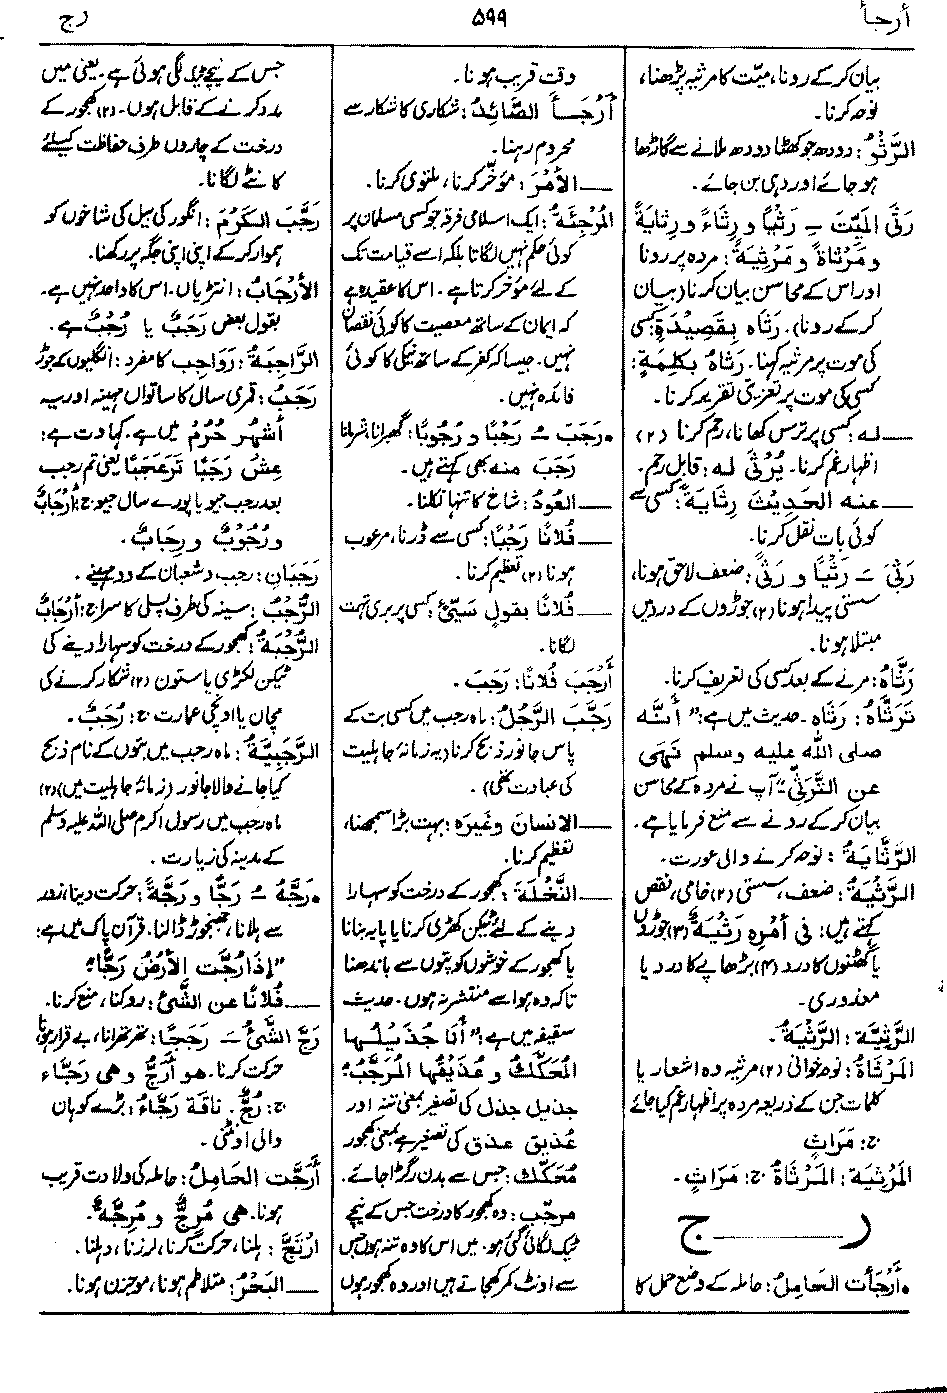 أرجأ
۵۹۹
رج
بیان کرکے رونا، میّت کا مرثیہ پڑھنا،
نوحہ کرنا۔
الرَّثُوُ: دودھ جو کھٹا دودھ ملانے سے گاڑھا
ہو جائے اور دہی بن جائے۔
رَثَى المَيِّتَ ــِ رَثْيًا و رِثَاءً و رِثَايَةً
و مَرْثَاةً و مَرْثِيَةً: مردہ پر رونا
اور اس کے محاسن بیان کرنا (بیان
کرکے رونا)۔ رَثَاه بِقَصِيدَةٍ: کسی
کی موت پر مرثیہ کہنا۔ رَثَاهُ بِكَلِمَةٍ:
کسی کی موت پر تعزیتی تقریر کرنا۔
ــــ له: کسی پر ترس کھانا، رحم کرنا (۲)
اظہارِ غم کرنا۔ يُرْثَى له: قابلِ رحم۔
ــــ عنه الحَدِيثَ رِثَايَةً: کسی سے
کوئی بات نقل کرنا۔
رَثِيَ ــَ رَثْيًا و رَثًى: ضعف لاحق ہونا،
سستی پیدا ہونا (۲) جوڑوں کے درد میں
مبتلا ہونا۔
رَثَّاهُ: مرنے کے بعد کسی کی تعریف کرنا۔
تَرَثَّاهُ: رَثَاه۔ حدیث میں ہے: "أنّه
صلى الله عليه وسلم نَهَى
عن التَّرَثِّي" آپ نے مردہ کے محاسن
بیان کرکے رونے سے منع فرمایا ہے۔
الرَّثَّايَةُ: نوحہ کرنے والی عورت۔
الرَّثْيَةُ: ضعف، سستی (۲) خامی، نقص
کہتے ہیں: في أمْرِه رَثْيَةٌ (۳) جوڑوں
یا گھٹنوں کا درد (۴) بڑھاپے کا درد یا
معذوری۔
الرَّثِيَّة: الرَّثْيَةُ۔
المَرْثَاةُ: نوحہ خوانی (۲) مرثیہ وہ اشعار یا
کلمات جن کے ذریعہ مردہ پر اظہارِ غم کیا جائے
ج: مَرَاثٍ
المَرْثِيَة: المَرْثَاةُ ج: مَرَاثٍ۔
ر ـــــ ج
• أرْجَأتِ الحَامِلُ: حاملہ کے وضع حمل کا
وقت قریب ہونا۔
أرْجَأَ الصَّائِدُ: شکاری کا شکار سے
محروم رہنا۔
ــــ الأمْرَ: مؤخّر کرنا، ملتوی کرنا۔
المُرْجِئَةُ: ایک اسلامی فرقہ جو کسی مسلمان پر
کوئی حکم نہیں لگاتا بلکہ اسے قیامت تک
کے لئے مؤخر کرتا ہے۔ اس کا عقیدہ ہے
کہ ایمان کے ساتھ معصیت کا کوئی نقصان
نہیں۔ جیسا کہ کفر کے ساتھ نیکی کا کوئی
فائدہ نہیں۔
• رَجَبَ ــُ رَجْبًا و رُجُوبًا: گھبرانا، شرمانا
رَجَبَ منه بھی کہتے ہیں۔
ــــ العُودُ: شاخ کا تنہا نکلنا۔
ــــ فُلَانًا رَجْبًا: کسی سے ڈرنا، مرعوب
ہونا (۲) تعظیم کرنا۔
ــــ فُلَانًا بقولٍ سَيِّئٍ: کسی پر بری تہمت
لگانا۔
أَرْجَبَ فُلَانًا: رَجَبَ۔
رَجَّبَ الرَّجُلُ: ماہ رجب میں کسی بت کے
پاس جانور ذبح کرنا (یہ زمانۂ جاہلیت
کی عبادت تھی)۔
ــــ الإنسانَ وغَيرَه: بہت بڑا سمجھنا،
تعظیم کرنا۔
ــــ النَّخْلَةَ: کھجور کے درخت کو سہارا
دینے کے لئے ٹیکن کھڑی کرنا یا پایہ بنانا
یا کھجور کے خوشوں کو پتوں سے باندھنا
تاکہ وہ ہوا سے منتشر نہ ہوں۔ حدیث
سقیفہ میں ہے: "أنَا جُذَيْلُهَا
المُحَكَّكُ و عُذَيْقُها المُرَجَّبُ:
جذیل جذل کی تصغیر بمعنی تنہ اور
عُذیق عذق کی تصغیر ہے بمعنی کھجور
مُحَكَّك: جس سے بدن رگڑا جائے۔
مرجّب: وہ کھجور کا درخت جس کے نیچے
ٹیک لگائی گئی ہو۔ میں اس کا وہ تنہ ہوں جس
سے اونٹ کمر کھجاتے ہیں اور وہ کھجور ہوں
جس کے نیچے ٹیک لگی ہوئی ہے۔ یعنی میں
مدد کرنے کے قابل ہوں۔ (۲) کھجور کے
درخت کے چاروں طرف حفاظت کیلئے
کانٹے لگانا۔
رَجَّبَ الكَرْمَ: انگور کی بیل کی شاخوں کو
ہموار کرکے اپنی اپنی جگہ پر رکھنا۔
الأرْجَابُ: انتڑیاں۔ اس کا واحد نہیں ہے۔
بقول بعض رَجَبٌ یا رُجْبٌ ہے۔
الرَّاجِبَةُ: رَوَاجِب کا مفرد: انگلیوں کے جوڑ
رَجَبٌ: قمری سال کا ساتواں مہینہ اور یہ
أشْهُر حُرُم میں ہے۔ کہاوت ہے:
عِشْ رَجَبًا تَرَ عَجَبًا یعنی تم رجب
بعد رجب جیو یا پورے سال جیو ج: أرْجَابٌ
و رُجُوبٌ و رِجَابٌ۔
رَجَبَان: رجب و شعبان کے دو مہینے۔
الرُّجْبُ: سینہ کی طرف پسلی کا سرا ج: أرْجَابٌ
الرُّجْبَةُ: کھجور کے درخت کو سہارا دینے کی
ٹیکن لکڑی یا ستون (۲) شکار کرنے کی
مچان یا اونچی عمارت ج: رُجَبٌ۔
الرَّجَبِيَّةُ: ماہ رجب میں بتوں کے نام ذبح
کیا جانے والا جانور (زمانۂ جاہلیت میں) (۲)
ماہ رجب میں رسول اکرم صلی اللہ علیہ وسلم
کے مدینہ کی زیارت۔
• رَجَّهُ ــُ رَجًّا و رَجَّةً: حرکت دینا، زور
سے ہلانا، جھنجھوڑ ڈالنا۔ قرآن پاک میں ہے:
"إذَا رُجَّتِ الأَرْضُ رَجًّا"
ــــ فُلَانًا عن الشَّيْءِ: روکنا، منع کرنا۔
رَجَّ الشَّيْءُ ــَ رَجَجًا: تھرتھرانا، بے قرار ہونا
حرکت کرنا۔ هو أَرَجُّ وهي رَجَّاء
ج: رُجٌّ۔ ناقَة رَجَّاءُ: بڑے کوہان
والی اونٹنی۔
أَرَجَّتِ الحَامِلُ: حاملہ کی ولادت قریب
ہونا۔ هي مُرِجٌّ و مُرِجَّةٌ۔
ارْتَجَّ: ہلنا، حرکت کرنا، لرزنا، دہلنا۔
ــــ البَحْرُ: متلاطم ہونا، موجزن ہونا۔